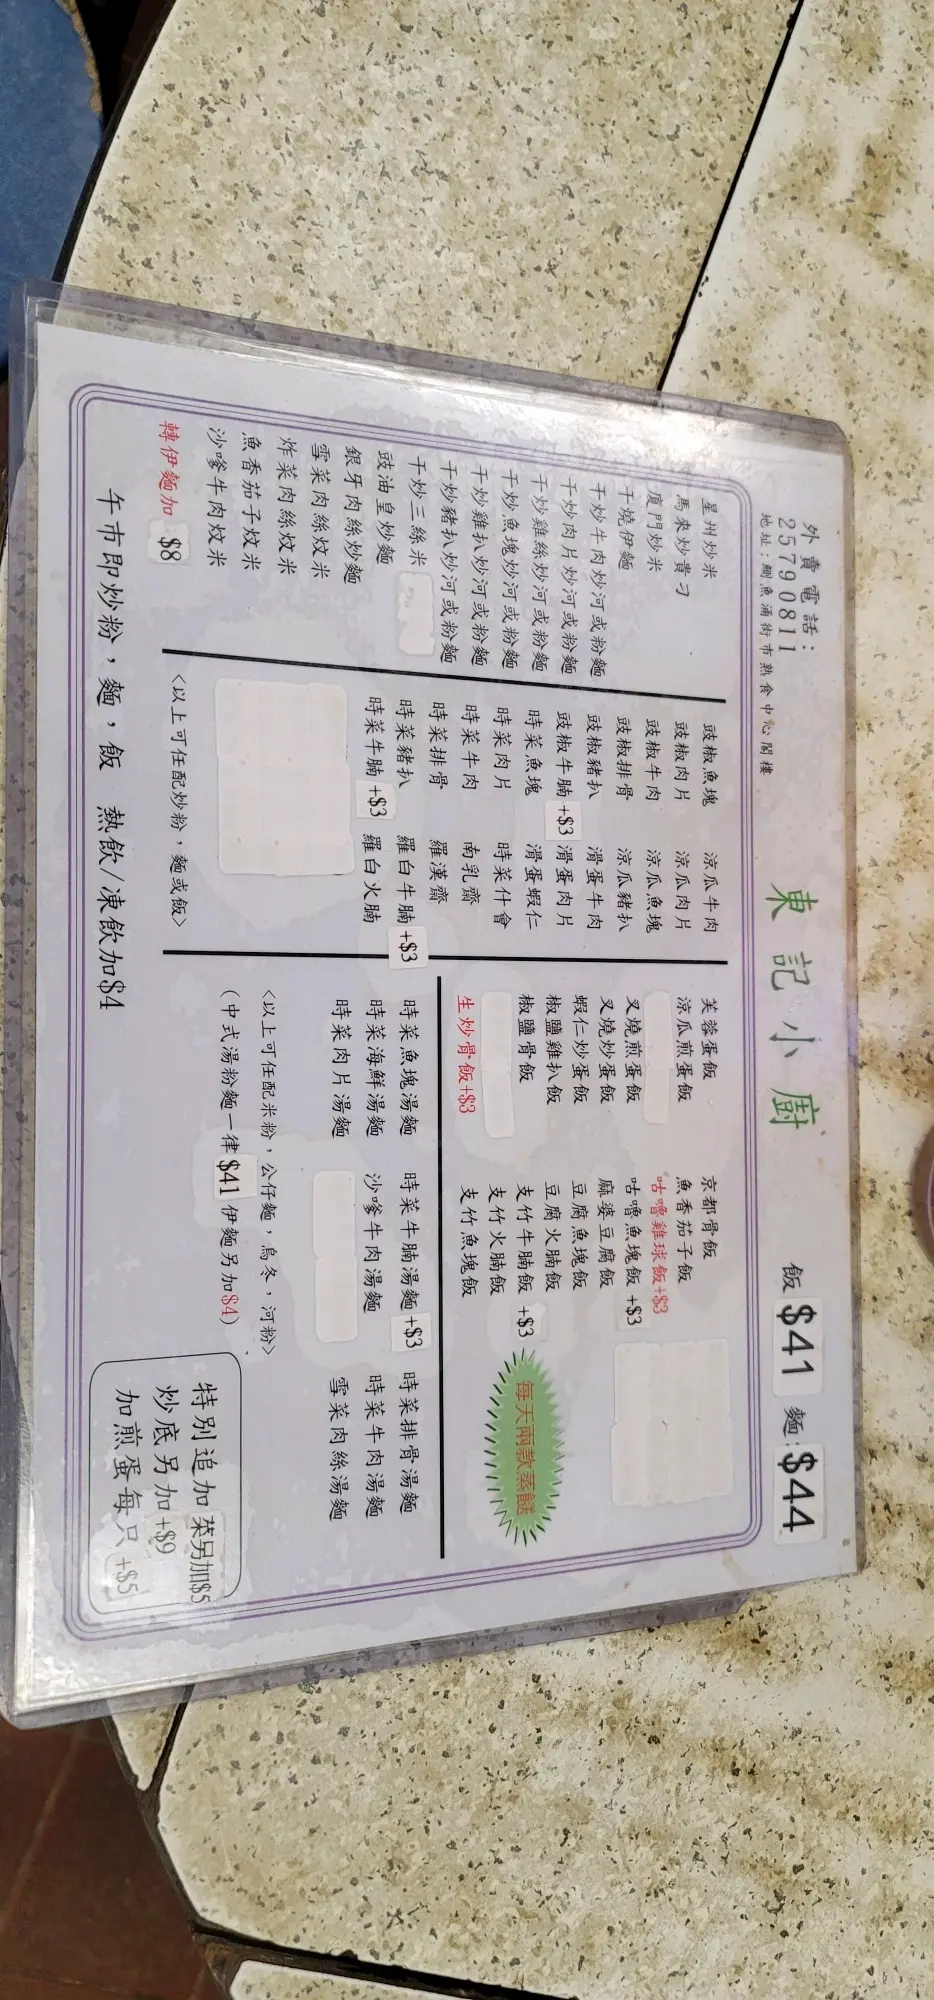 外賣電話:
25790811
地址:鰂魚涌街市熟食中心閣樓
東記小廚
飯 $41 麵:$44
星州炒米
馬來炒貴刁
廈門炒米
干燒伊麵
干炒牛肉炒河或粉麵
干炒肉片炒河或粉麵
干炒雞絲炒河或粉麵
干炒魚塊炒河或粉麵
干炒雞扒炒河或粉麵
干炒豬扒炒河或粉麵
干炒三絲米
豉油皇炒麵
銀牙肉絲炒麵
雪菜肉絲炆米
炸菜肉絲炆米
魚香茄子炆米
沙嗲牛肉炆米
轉伊麵加 $8
豉椒魚塊 涼瓜牛肉
豉椒肉片 涼瓜肉片
豉椒牛肉 涼瓜魚塊
豉椒排骨 涼瓜豬扒
豉椒豬扒 滑蛋牛肉
豉椒牛腩+$3 滑蛋肉片
時菜魚塊 滑蛋蝦仁
時菜肉片 時菜什會
時菜牛肉 南乳齋
時菜排骨 羅漢齋
時菜豬扒 羅白牛腩+$3
時菜牛腩+$3 羅白火腩
<以上可任配炒粉,麵或飯>
芙蓉蛋飯 京都骨飯
涼瓜煎蛋飯 魚香茄子飯
咕嚕雞球飯+$3
叉燒煎蛋飯 咕嚕魚塊飯+$3
叉燒炒蛋飯 麻婆豆腐飯
蝦仁炒蛋飯 豆腐魚塊飯
椒鹽雞扒飯 豆腐火腩飯
椒鹽骨飯 支竹牛腩飯+$3
支竹火腩飯
生炒骨飯+$3 支竹魚塊飯
每天兩款蒸餸
時菜魚塊湯麵 時菜牛腩湯麵+$3 時菜排骨湯麵
時菜海鮮湯麵 沙嗲牛肉湯麵 時菜牛肉湯麵
時菜肉片湯麵 雪菜肉絲湯麵
<以上可任配米粉,公仔麵,烏冬,河粉>
(中式湯粉麵一律$41伊麵另加$4)
特別追加 菜另加$5
炒底另加+$9
加煎蛋每只+$5
午市即炒粉,麵,飯 熱飲/凍飲加$4